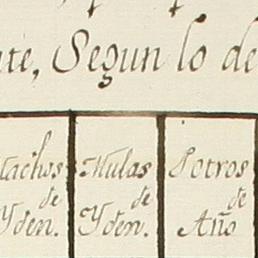 te, Segun lo de
Machos de Yden.
Mulas de Yden.
Potros de Año